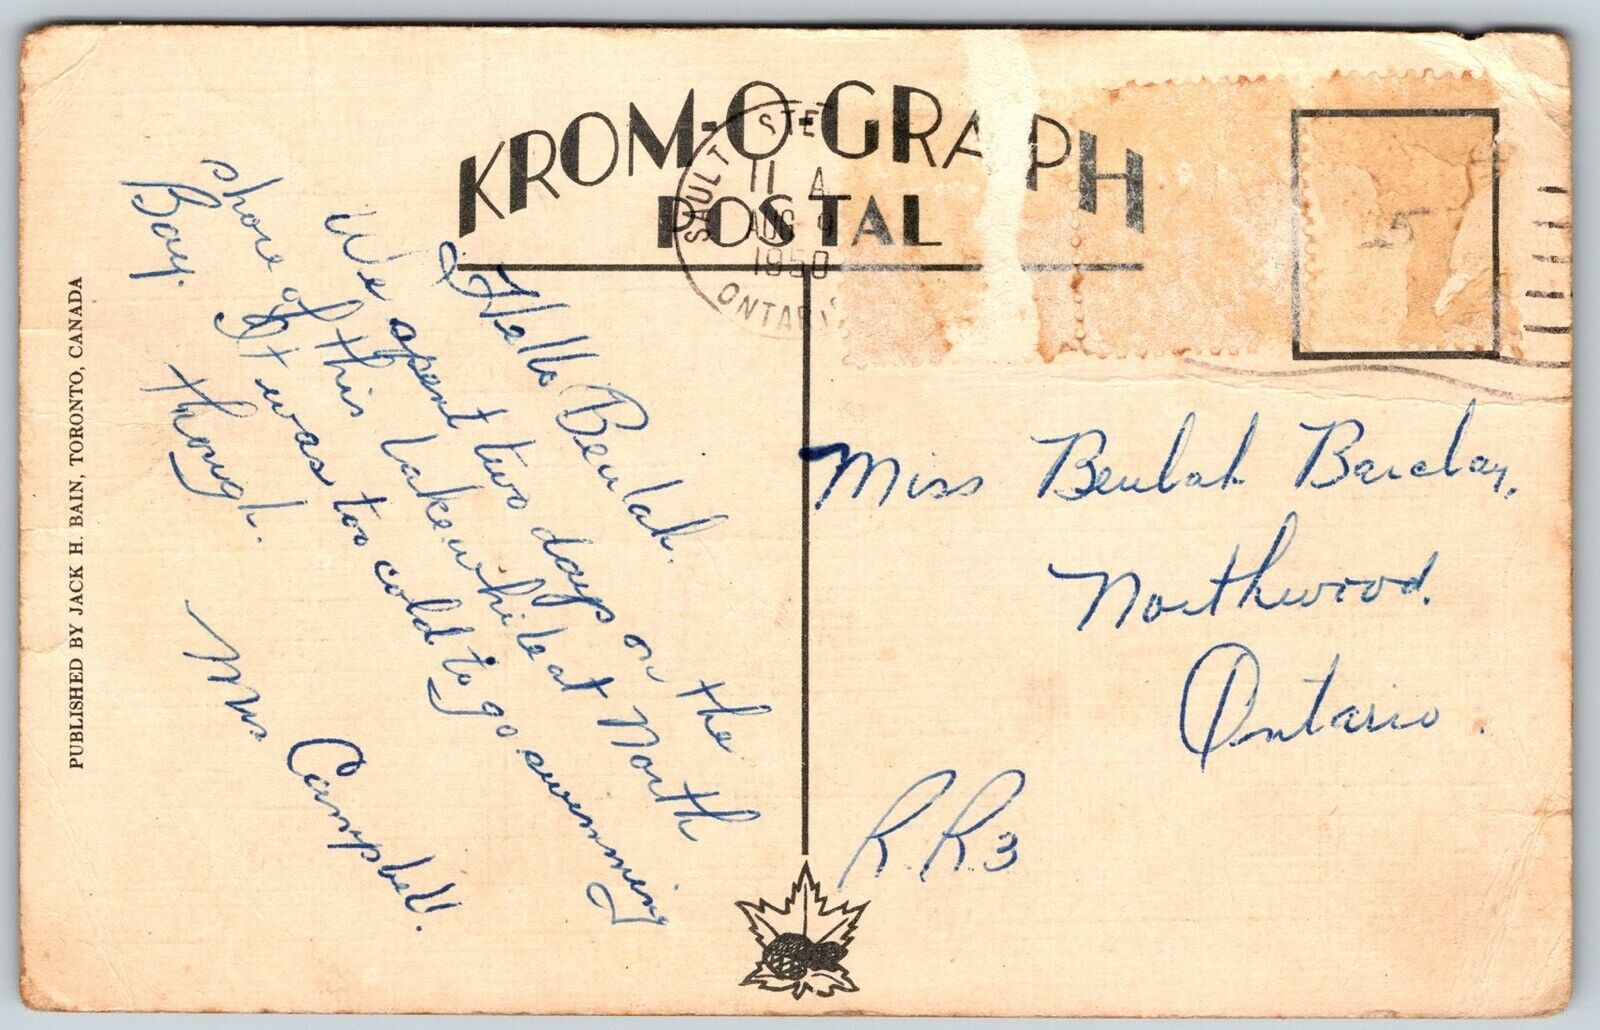 KROM-O-GRAPH
POSTAL
SAULT STE
11 A
AUG 9
1950
ONTARIO
15
Hello Beulah.
We spent two days on the
shore of this lake while at North
Bay. It was too cold to go swimming
though.
Mrs Campbell.
Miss Beulah Barclay,
Northwood.
Ontario.
R.R.3
PUBLISHED BY JACK H. BAIN, TORONTO, CANADA